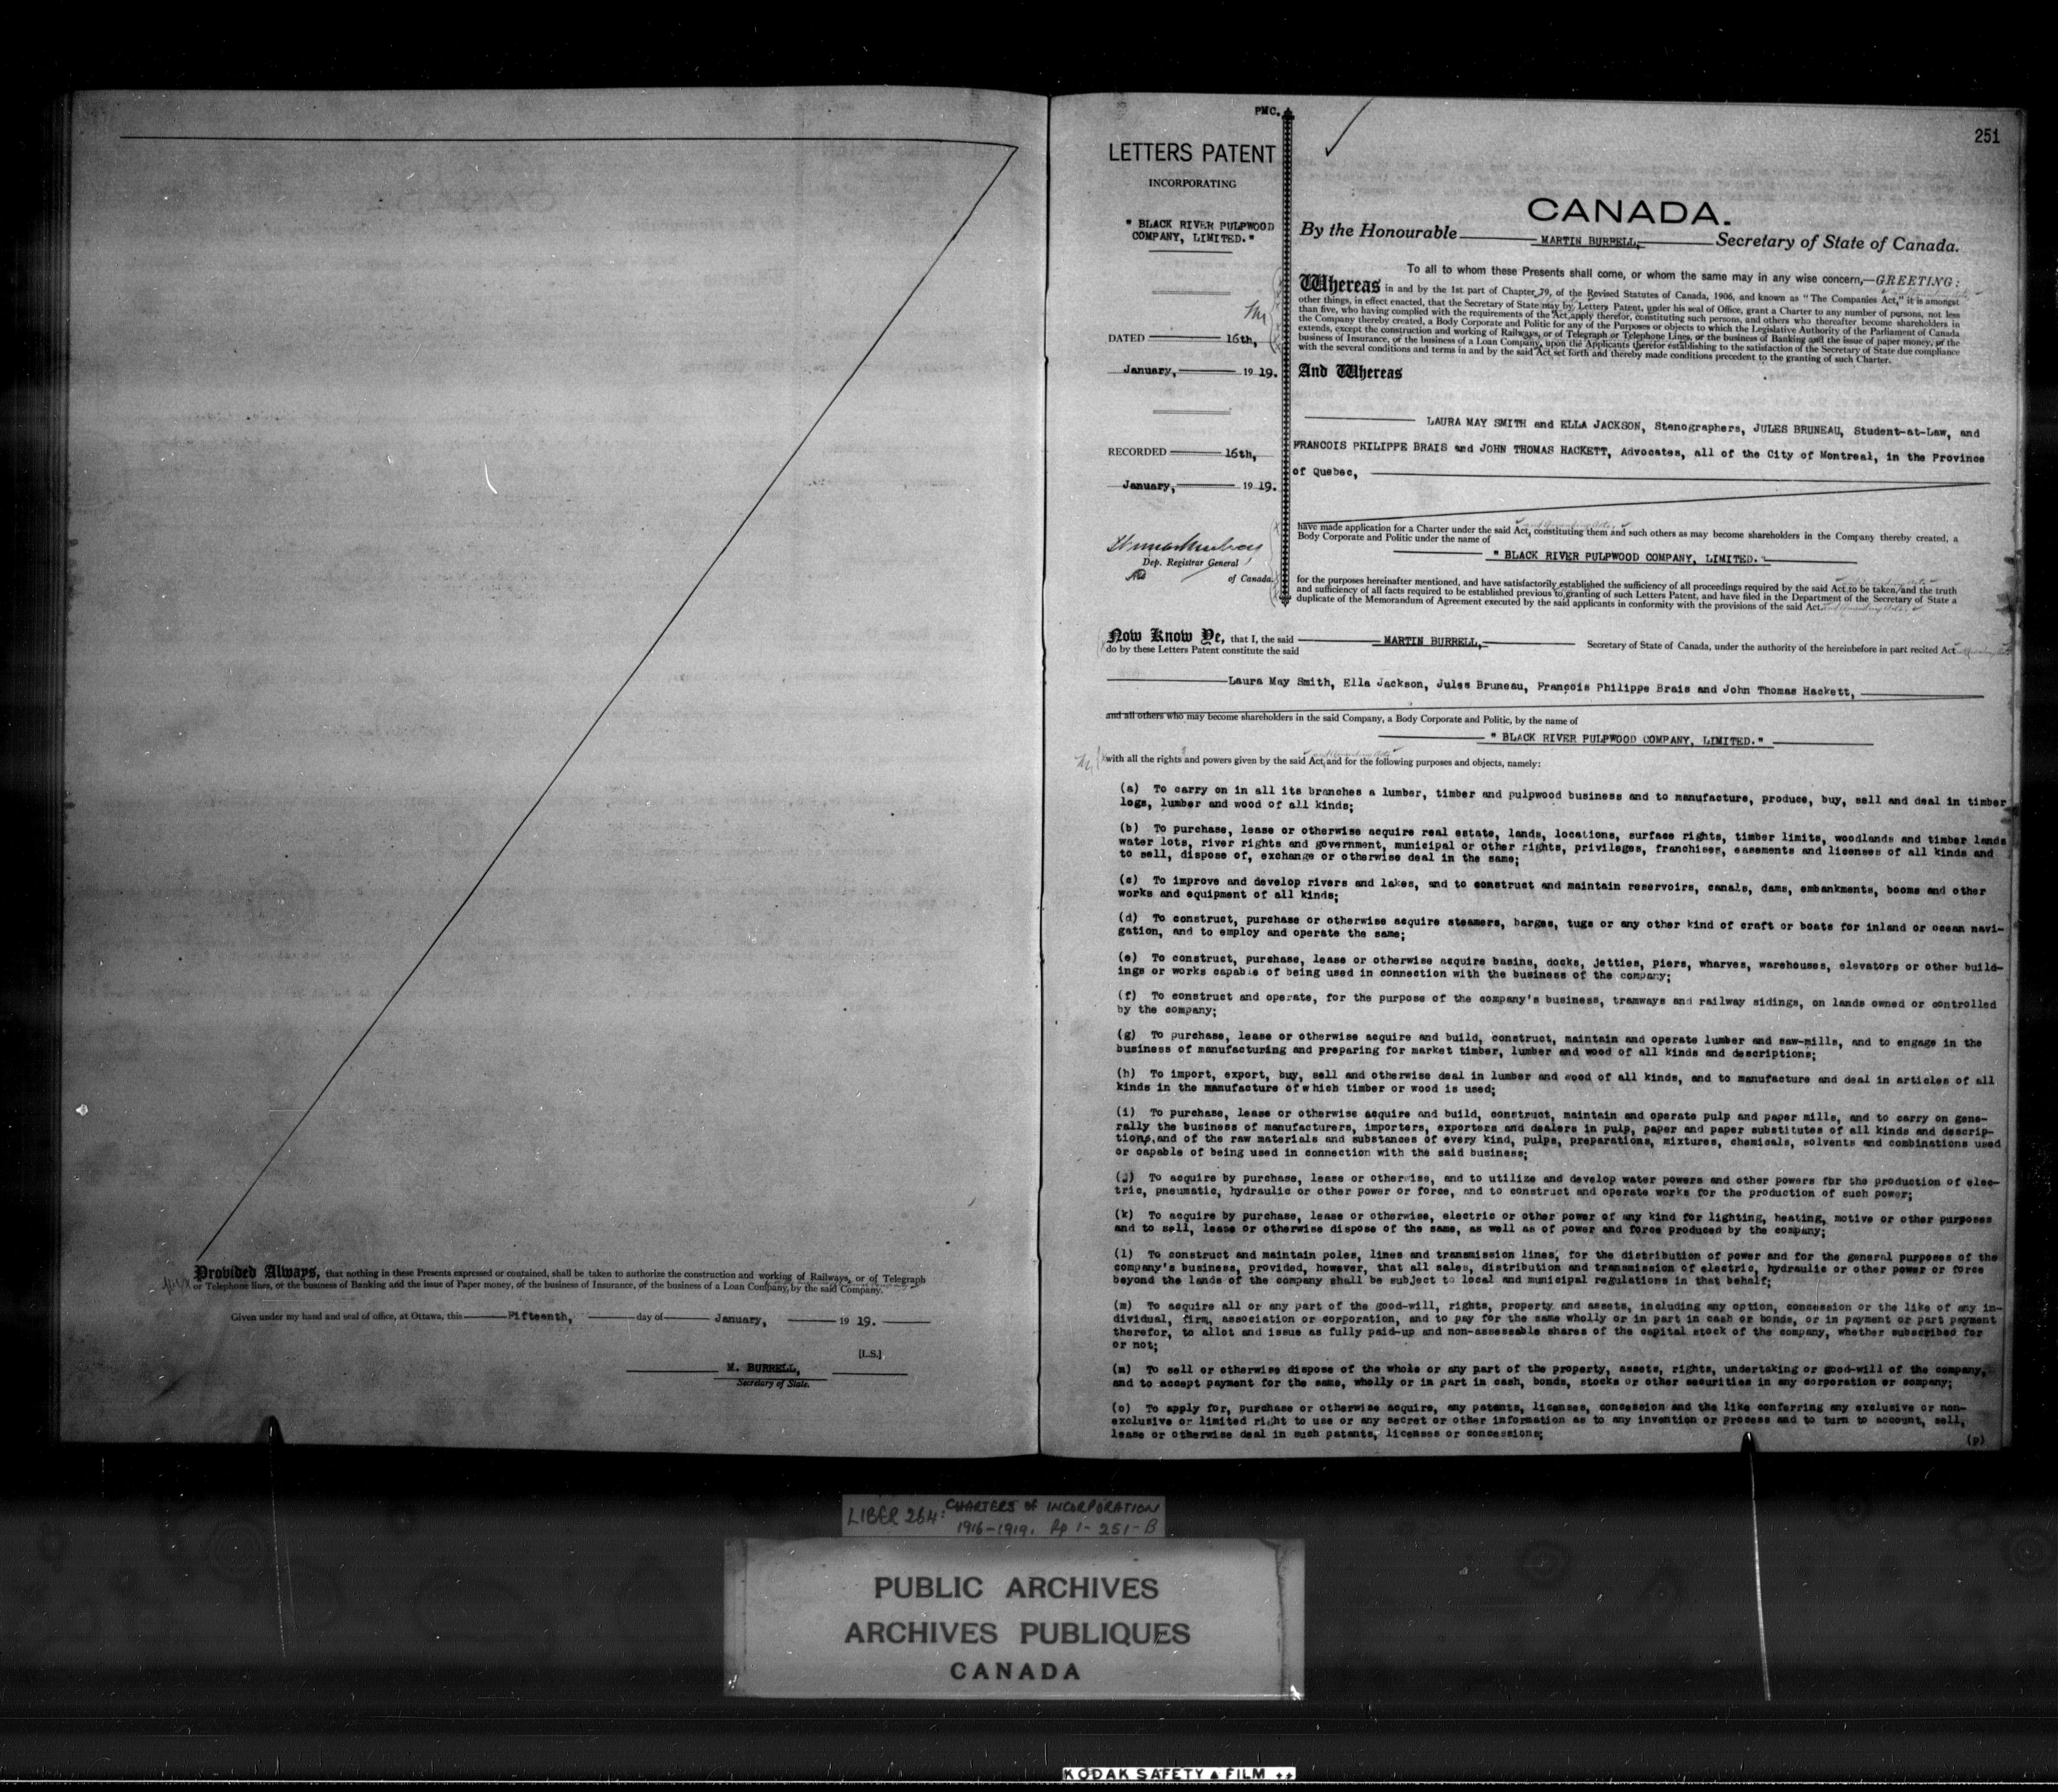 Provided Always, that nothing in these Presents expressed or contained, shall be taken to authorize the construction and working of Railways, or of Telegraph
or Telephone lines, of the business of Banking and the issue of Paper money, of the business of Insurance, of the business of a Loan Company, by the said Company.
Given under my hand and seal of office, at Ottawa, this Fifteenth, day of January, 19 19.
[L.S.]
M. BURRELL,
Secretary of State.
PMC.
251
LETTERS PATENT
INCORPORATING
" BLACK RIVER PULPWOOD
COMPANY, LIMITED."
DATED 16th,
January, 19 19.
RECORDED 16th,
January, 19 19.
Dep. Registrar General
of Canada.
CANADA.
By the Honourable MARTIN BURRELL, Secretary of State of Canada.
To all to whom these Presents shall come, or whom the same may in any wise concern,—GREETING:
Whereas in and by the 1st part of Chapter 79, of the Revised Statutes of Canada, 1906, and known as "The Companies Act," it is amongst
other things, in effect enacted, that the Secretary of State may by Letters Patent, under his seal of Office, grant a Charter to any number of persons, not less
than five, who having complied with the requirements of the Act, apply therefor, constituting such persons, and others who thereafter become shareholders in
the Company thereby created, a Body Corporate and Politic for any of the Purposes or objects to which the Legislative Authority of the Parliament of Canada
extends, except the construction and working of Railways, or of Telegraph or Telephone Lines, or the business of Banking and the issue of paper money, or the
business of Insurance, or the business of a Loan Company, upon the Applicants therefor establishing to the satisfaction of the Secretary of State due compliance
with the several conditions and terms in and by the said Act set forth and thereby made conditions precedent to the granting of such Charter.
And Whereas
LAURA MAY SMITH and ELLA JACKSON, Stenographers, JULES BRUNEAU, Student-at-Law, and
FRANCOIS PHILIPPE BRAIS and JOHN THOMAS HACKETT, Advocates, all of the City of Montreal, in the Province
of Quebec,
have made application for a Charter under the said Act, constituting them and such others as may become shareholders in the Company thereby created, a
Body Corporate and Politic under the name of
" BLACK RIVER PULPWOOD COMPANY, LIMITED."
for the purposes hereinafter mentioned, and have satisfactorily established the sufficiency of all proceedings required by the said Act to be taken, and the truth
and sufficiency of all facts required to be established previous to granting of such Letters Patent, and have filed in the Department of the Secretary of State a
duplicate of the Memorandum of Agreement executed by the said applicants in conformity with the provisions of the said Act.
Now Know Ye, that I, the said MARTIN BURRELL, Secretary of State of Canada, under the authority of the hereinbefore in part recited Act
do by these Letters Patent constitute the said
Laura May Smith, Ella Jackson, Jules Bruneau, François Philippe Brais and John Thomas Hackett,
and all others who may become shareholders in the said Company, a Body Corporate and Politic, by the name of
" BLACK RIVER PULPWOOD COMPANY, LIMITED."
with all the rights and powers given by the said Act, and for the following purposes and objects, namely:
(a) To carry on in all its branches a lumber, timber and pulpwood business and to manufacture, produce, buy, sell and deal in timber
logs, lumber and wood of all kinds;
(b) To purchase, lease or otherwise acquire real estate, lands, locations, surface rights, timber limits, woodlands and timber lands
water lots, river rights and government, municipal or other rights, privileges, franchises, easements and licenses of all kinds and
to sell, dispose of, exchange or otherwise deal in the same;
(c) To improve and develop rivers and lakes, and to construct and maintain reservoirs, canals, dams, embankments, booms and other
works and equipment of all kinds;
(d) To construct, purchase or otherwise acquire steamers, barges, tugs or any other kind of craft or boats for inland or ocean navi-
gation, and to employ and operate the same;
(e) To construct, purchase, lease or otherwise acquire basins, docks, jetties, piers, wharves, warehouses, elevators or other build-
ings or works capable of being used in connection with the business of the company;
(f) To construct and operate, for the purpose of the company's business, tramways and railway sidings, on lands owned or controlled
by the company;
(g) To purchase, lease or otherwise acquire and build, construct, maintain and operate lumber and saw-mills, and to engage in the
business of manufacturing and preparing for market timber, lumber and wood of all kinds and descriptions;
(h) To import, export, buy, sell and otherwise deal in lumber and wood of all kinds, and to manufacture and deal in articles of all
kinds in the manufacture of which timber or wood is used;
(i) To purchase, lease or otherwise acquire and build, construct, maintain and operate pulp and paper mills, and to carry on gene-
rally the business of manufacturers, importers, exporters and dealers in pulp, paper and paper substitutes of all kinds and descrip-
tions, and of the raw materials and substances of every kind, pulps, preparations, mixtures, chemicals, solvents and combinations used
or capable of being used in connection with the said business;
(j) To acquire by purchase, lease or otherwise, and to utilize and develop water powers and other powers for the production of elec-
tric, pneumatic, hydraulic or other power or force, and to construct and operate works for the production of such power;
(k) To acquire by purchase, lease or otherwise, electric or other power of any kind for lighting, heating, motive or other purposes
and to sell, lease or otherwise dispose of the same, as well as of power and force produced by the company;
(l) To construct and maintain poles, lines and transmission lines, for the distribution of power and for the general purposes of the
company's business, provided, however, that all sales, distribution and transmission of electric, hydraulic or other power or force
beyond the lands of the company shall be subject to local and municipal regulations in that behalf;
(m) To acquire all or any part of the good-will, rights, property and assets, including any option, concession or the like of any in-
dividual, firm, association or corporation, and to pay for the same wholly or in part in cash or bonds, or in payment or part payment
therefor, to allot and issue as fully paid-up and non-assessable shares of the capital stock of the company, whether subscribed for
or not;
(n) To sell or otherwise dispose of the whole or any part of the property, assets, rights, undertaking or good-will of the company,
and to accept payment for the same, wholly or in part in cash, bonds, stocks or other securities in any corporation or company;
(o) To apply for, purchase or otherwise acquire, any patents, licenses, concession and the like conferring any exclusive or non-
exclusive or limited right to use or any secret or other information as to any invention or process and to turn to account, sell,
lease or otherwise deal in such patents, licenses or concessions;
(p)
LIBER 264: CHARTERS of INCORPORATION
1916-1919. Pp 1-251-B
PUBLIC ARCHIVES
ARCHIVES PUBLIQUES
CANADA
KODAK SAFETY FILM